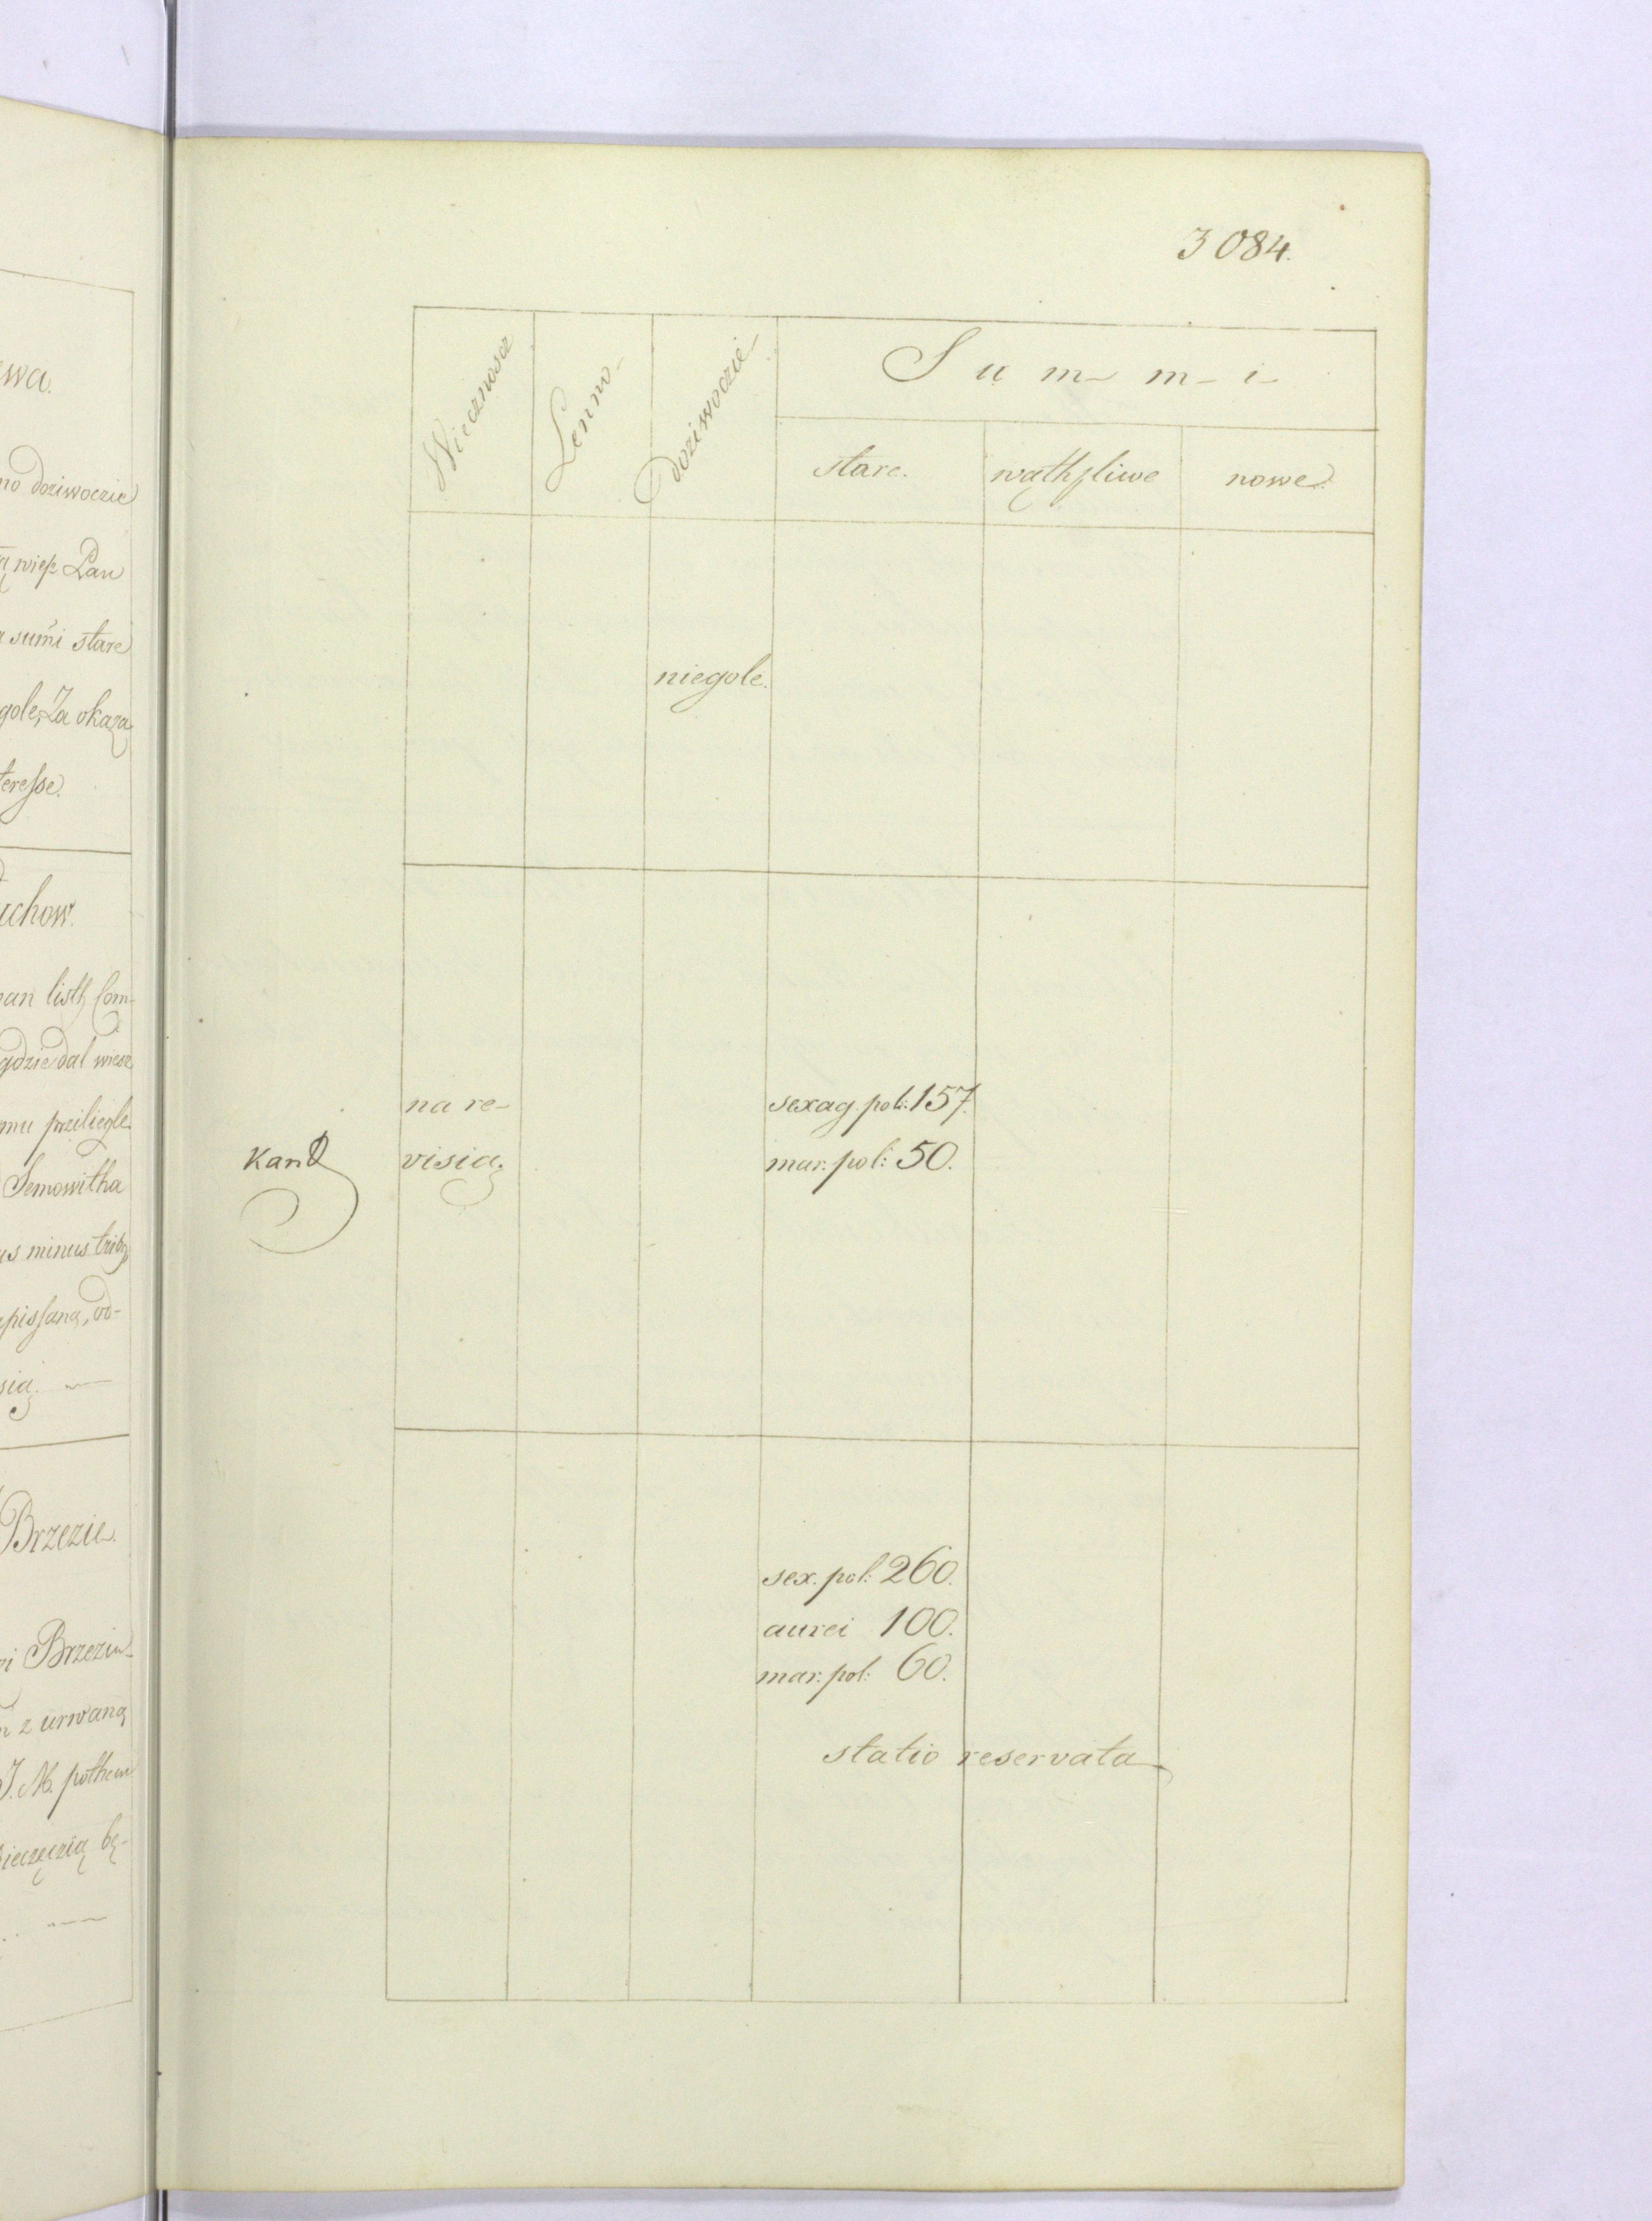 ewa.
no doziwoczie
ą wiesz Pan
sumi stare
gole, Za okaza
teresse.
uchow.
pan listh Com-
gdzie dal wiecz
mu priliegle
Semowitha
us minus trib9
pissaną, od-
sią.
Brzezie.
ni Brzezin-
z urwaną
J. M. pothem
pieczęczią bę-
3084.
Wiecznoscz
Lenno-
doziwoczie-
S u m- m- i-
stare.
wąthpliwe
nowe.
niegole.
na re-
sexag. pol: 157.
visią.
mar: pol: 50.
sex. pol: 260.
aurei 100.
mar: pol: 60.
statio reservata